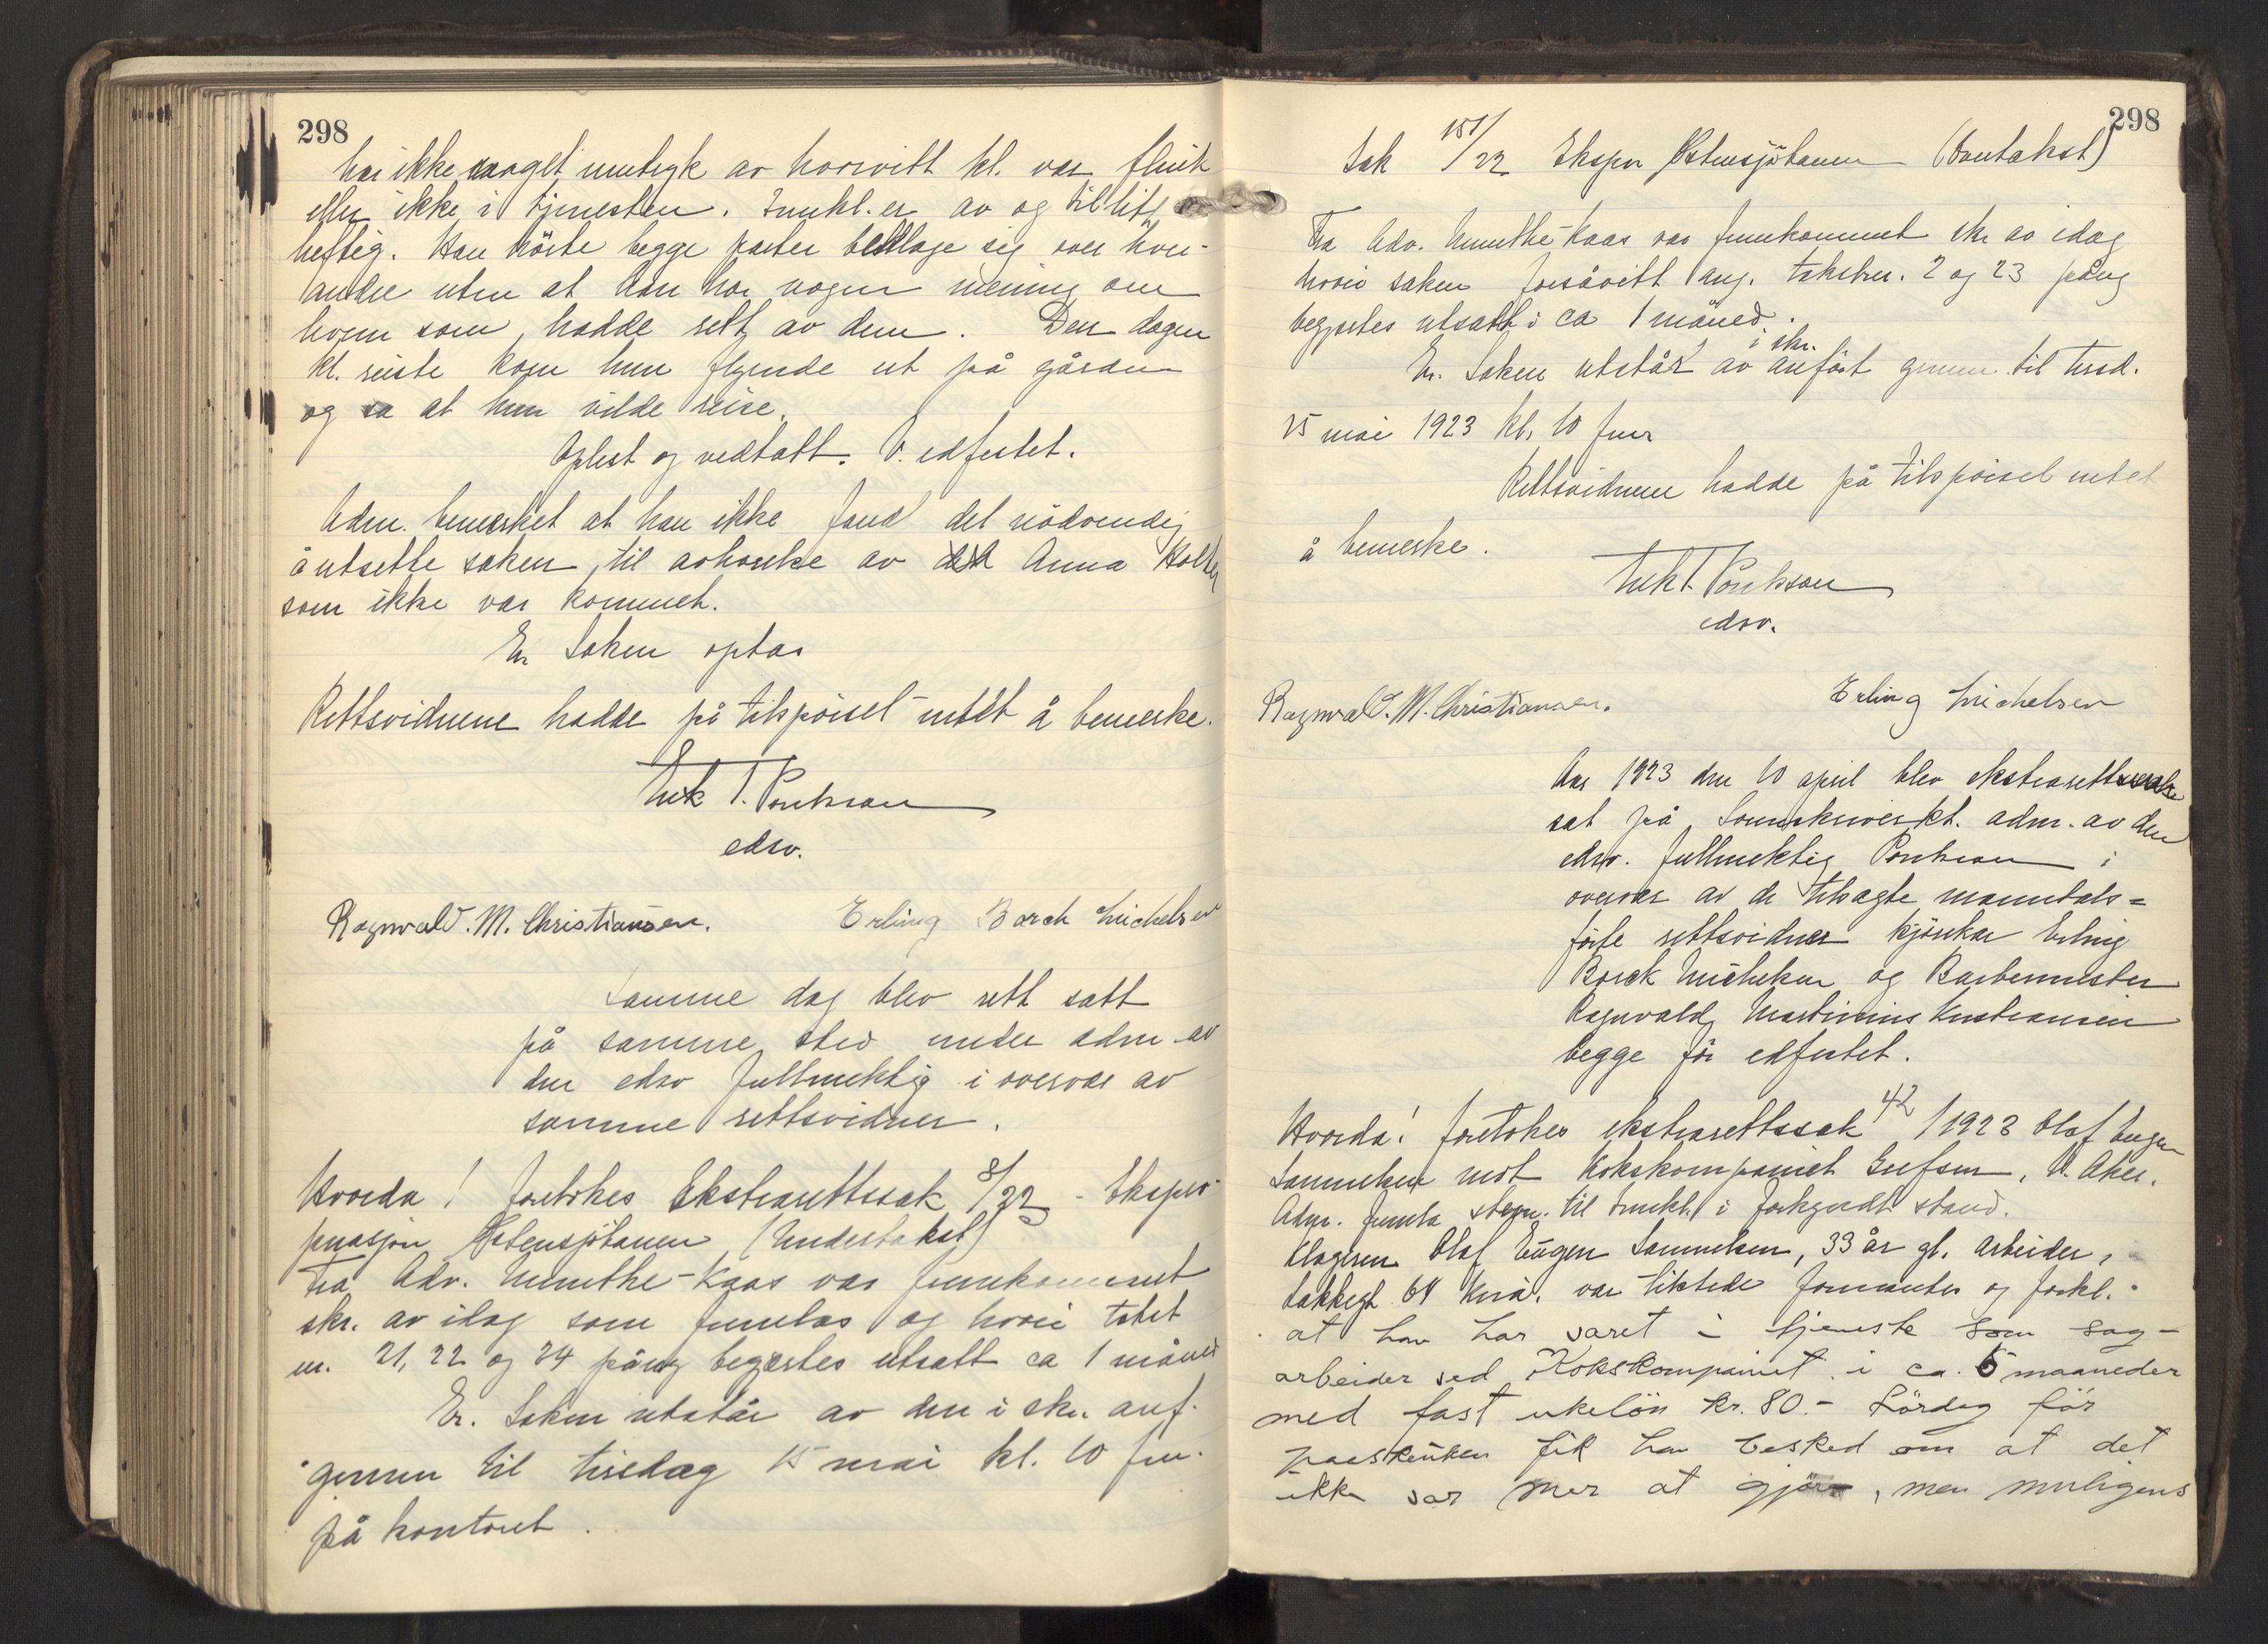 298
har ikke noget inntryk av hvorvitt kl. var flink
eller ikke i tjenesten. Innkl. er av og til litt
heftig. Han hörte begge parter beklage sig over hver-
andre uten at han har nogen mening om
hvem som hadde rett av dem. Den dagen
kl. reiste kom hun flyende ut på gården
og sa at hun vilde reise.
Oplest og vedtatt. V. edfestet.
Adm. bemerket at han ikke fand det nödvendig
å utsette saken til avhörelse av Anna Holter
som ikke var kommet.
Er. Saken optas
Rettsvidnene hadde på tilspörsel intet å bemerke.
edsv.
Ragnvald. M. Christiansen. Erling Borch Michelsen
Samme dag blev rett satt
på samme sted under adm av
den edsv fullmektig i overvær av
samme rettsvidner.
Hvorda! foretokes Ekstrarettssak 8/22 - Ekspro-
priasjon Østensjöbanen (Undertakst)
Fra Adv. Munthe-Kaas var fremkommet
skr. av idag som fremlas og hvori takst
nr. 21, 22 og 24 påny begjærtes utsatt ca 1 måned
Er. Saken utstår av den i skr. anf.
grunn til tirsdag 15 mai kl. 10 fm.
på kontoret.
298
Sak 151/22 Ekspr Østensjöbanen (Overtakst)
Fra Adv. Munthe-Kaas var fremkommet skr av idag
hvori saken forsåvitt ang. takstnr. 2 og 23 påny
begjærtes utsatt i ca 1 måned.
Er. Saken utstår av i skr. anfört grunn til tirsd.
15 mai 1923 kl. 10 fm
Rettsvidnene hadde på tilspörsel intet
å bemerke.
edsv.
Ragnvald. M. Christiansen. Erling Michelsen
Aar 1923 den 10 april blev ekstrarett
sat på Sorenskriverkt. adm. av den
edsv. fullmektig i
overvær av de tilsagte manntals=
förte rettsvidner kjörekar Erling
Borch Michelsen og Barbermester
Ragnvald Martinius Kristiansen
begge för edfestet.
Hvorda! foretokes ekstrarettssak 42/1923 Olaf Eugen
Samuelsen mot Kokskompaniet Grefsen, V. Aker.
Adm. fremla stevn. til innkl. i forkyndt stand.
Klageren Olaf Eugen Samuelsen, 33 år gl. arbeider,
64 var tilstede fremmöter og forkl.
at han har været i tjeneste som sag-
arbeider ved Kokskompaniet i ca. 5 maaneder
med fast ukelön kr. 80.- Lördag för
paaskeuken fik han besked om at det
ikke var mer at gjöre, men muligens